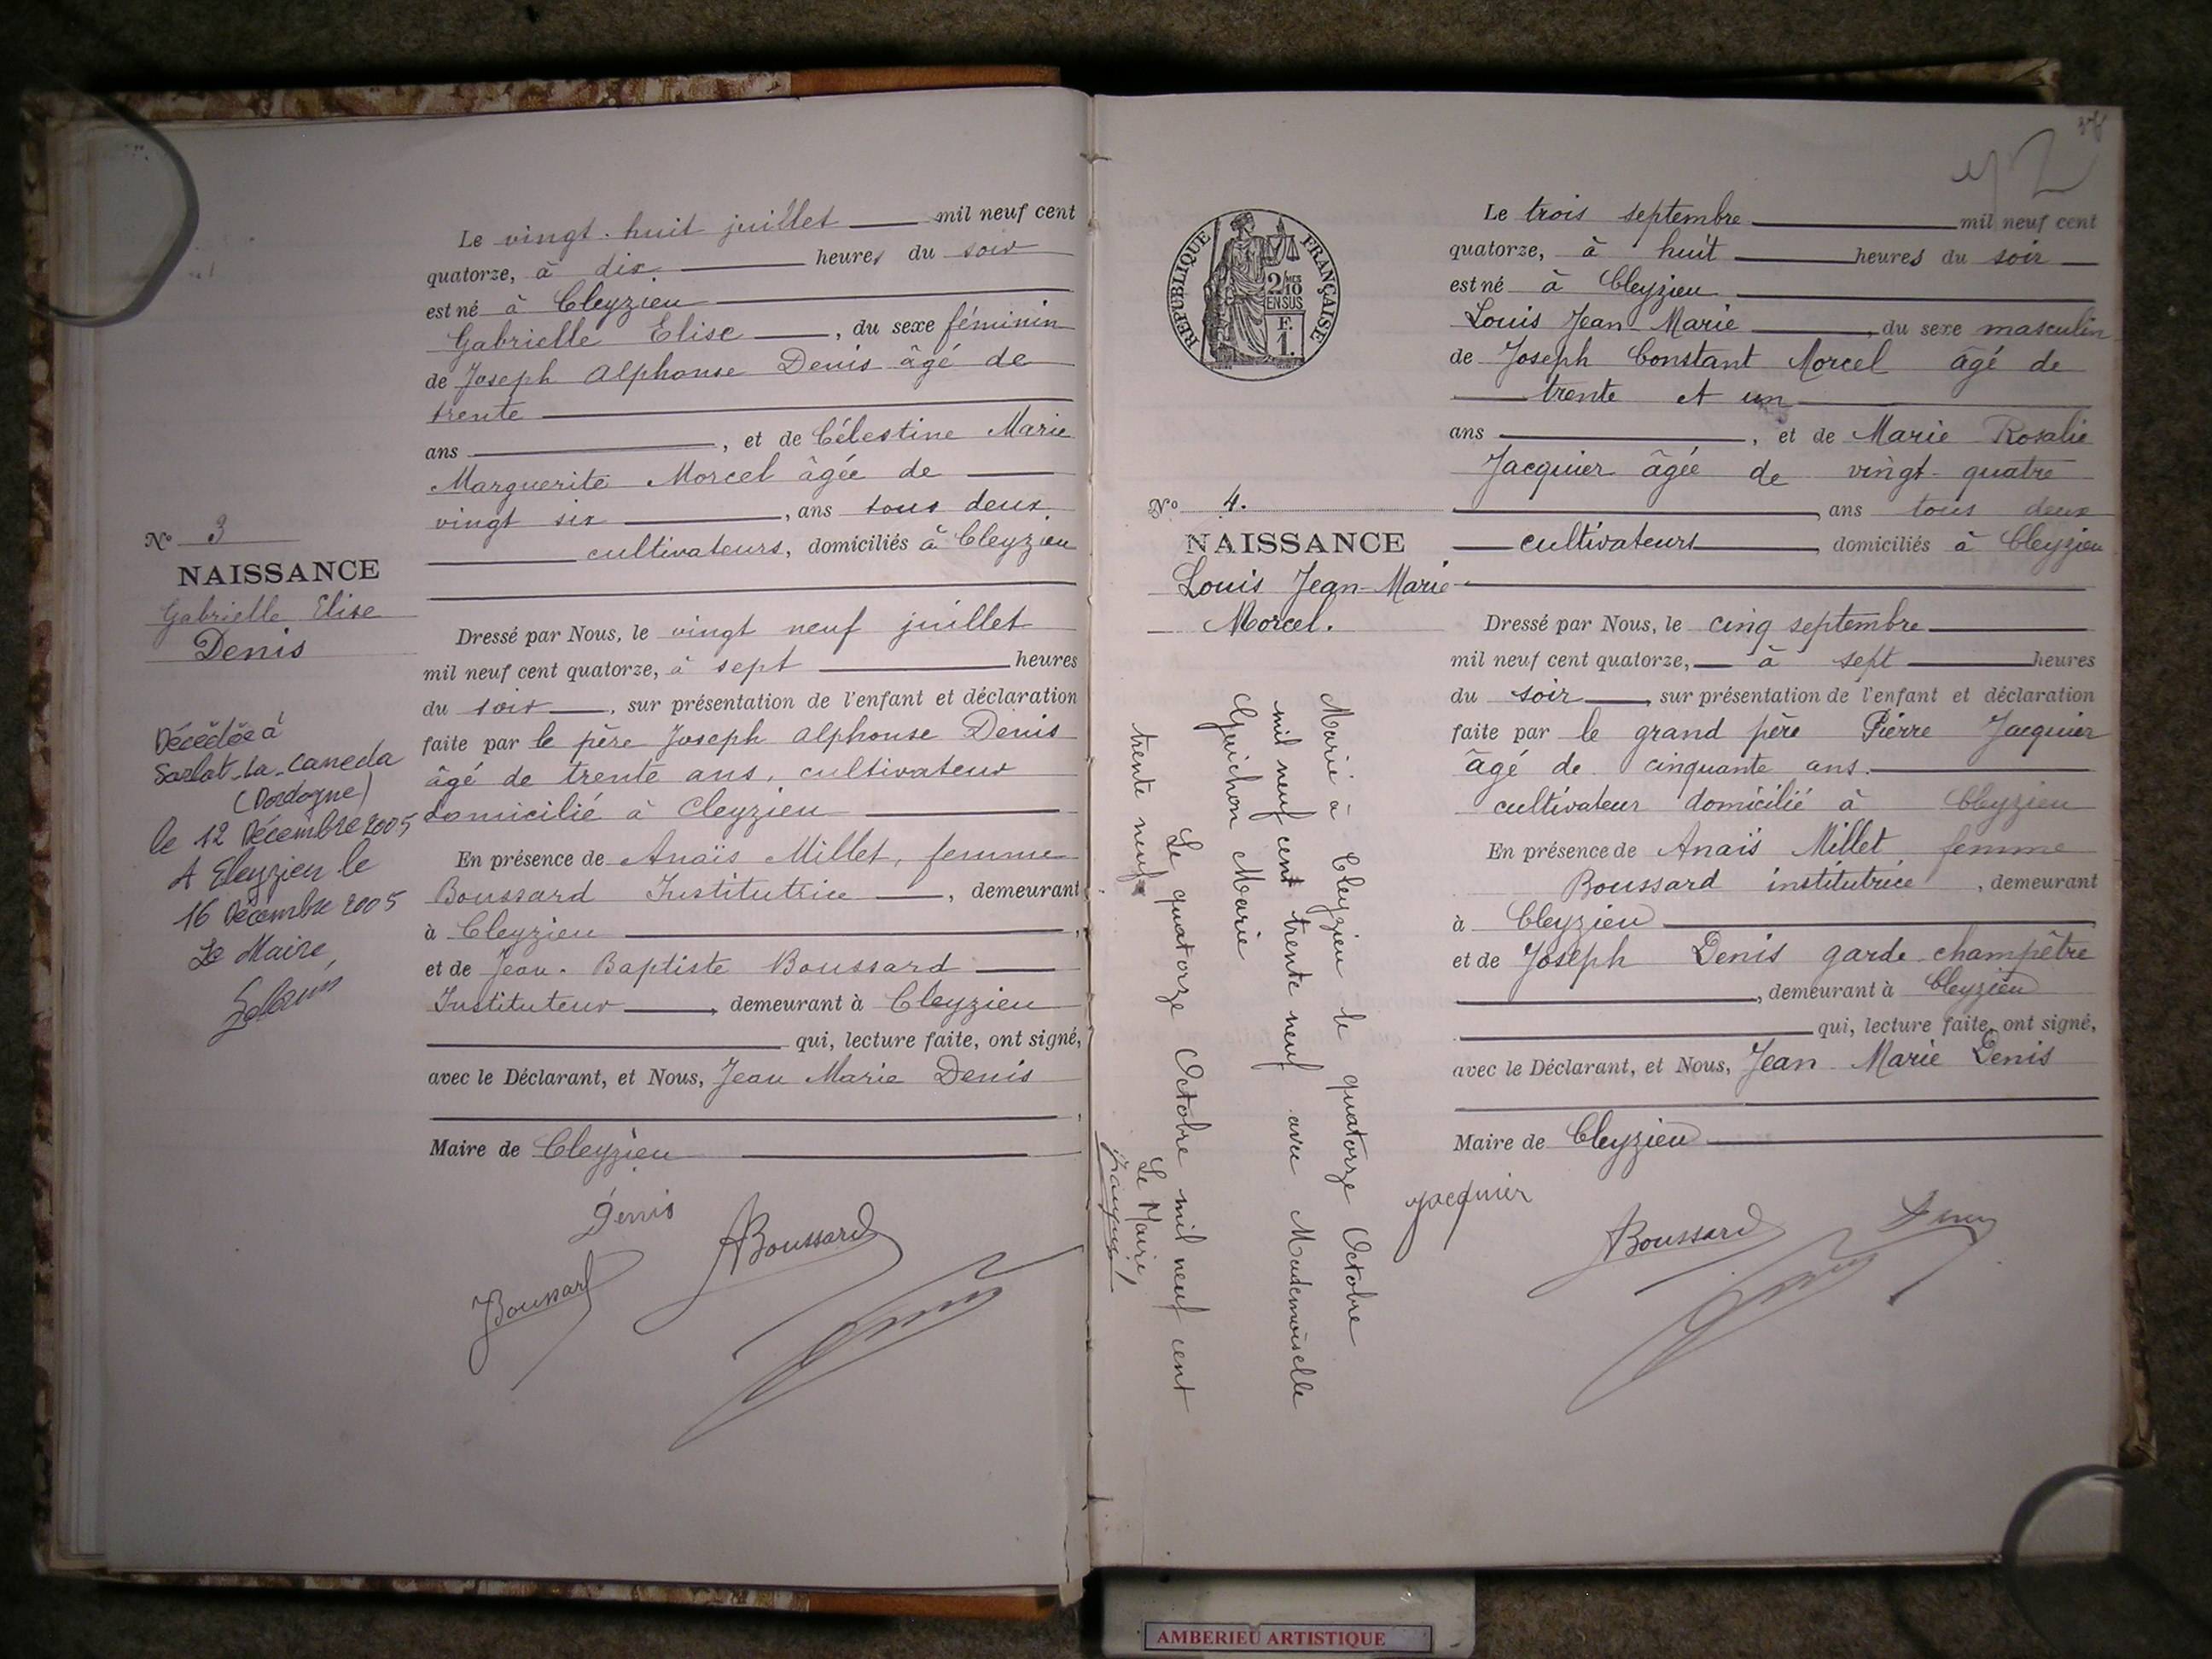 Le vingt-huit juillet mil neuf cent
quatorze, à dix heures du soir
est né à Cleyzieu
Gabrielle Elise, du sexe féminin
de Joseph Alphonse Denis âgé de
trente
ans, et de Célestine Marie
Marguerite Morcel âgée de
vingt six, ans tous deux
cultivateurs, domiciliés à Cleyzieu
No 3
NAISSANCE
Gabrielle Elise
Denis
Dressé par Nous, le vingt neuf juillet
mil neuf cent quatorze, à sept heures
du soir, sur présentation de l'enfant et déclaration
faite par le père Joseph Alphonse Denis
âgé de trente ans, cultivateur
domicilié à Cleyzieu
En présence de Anaïs Millet, femme
Boussard Institutrice, demeurant
à Cleyzieu,
et de Jean-Baptiste Boussard
Instituteur, demeurant à Cleyzieu
qui, lecture faite, ont signé,
avec le Déclarant, et Nous, Jean Marie Denis
,
Maire de Cleyzieu
Denis
ABoussard
Boussard
Décédée à
Sarlat-la-Caneda
(Dordogne)
le 12 Décembre 2005
A Cleyzieu le
16 Décembre 2005
Le Maire,
RÉPUBLIQUE FRANÇAISE
2/10
EN SUS
F.
1.
Le trois septembre mil neuf cent
quatorze, à huit heures du soir
est né à Cleyzieu
Louis Jean Marie, du sexe masculin
de Joseph Constant Morcel âgé de
trente et un
ans, et de Marie Rosalie
Jacquier âgée de vingt-quatre
ans tous deux
cultivateurs, domiciliés à Cleyzieu
No 4.
NAISSANCE
Louis Jean-Marie
Morcel.
Dressé par Nous, le cinq septembre
mil neuf cent quatorze, à sept heures
du soir, sur présentation de l'enfant et déclaration
faite par le grand père Pierre Jacquier
âgé de cinquante ans.
cultivateur domicilié à Cleyzieu
En présence de Anaïs Millet femme
Boussard institutrice, demeurant
à Cleyzieu
et de Joseph Denis garde-champêtre
, demeurant à Cleyzieu
qui, lecture faite, ont signé,
avec le Déclarant, et Nous, Jean Marie Denis
Maire de Cleyzieu
Jacquier
ABoussard
Marié à Cleyzieu le quatorze Octobre
mil neuf cent trente neuf avec Mademoiselle
Guichon Marie
Le quatorze Octobre mil neuf cent
trente neuf
Le Maire,
AMBERIEU ARTISTIQUE